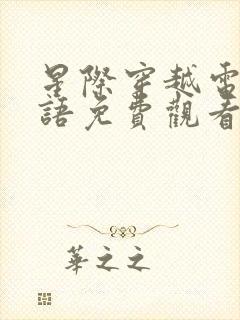 星際穿越電
語免費觀看
華之之